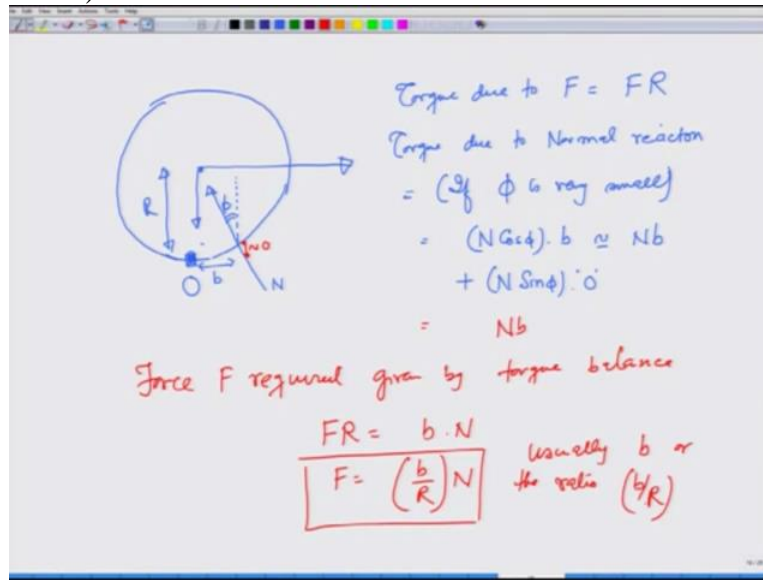 Torque due to F = FR
Torque due to Normal reacton
= (If ϕ is very small)
= (N Cosϕ). b ≃ Nb
+ (N Sinϕ).'0'
= Nb
R
ϕ
≈0
O
b
N
Force F required given by torque balance
FR = b.N
F = (b/R) N
usually b or
the ratio (b/R)